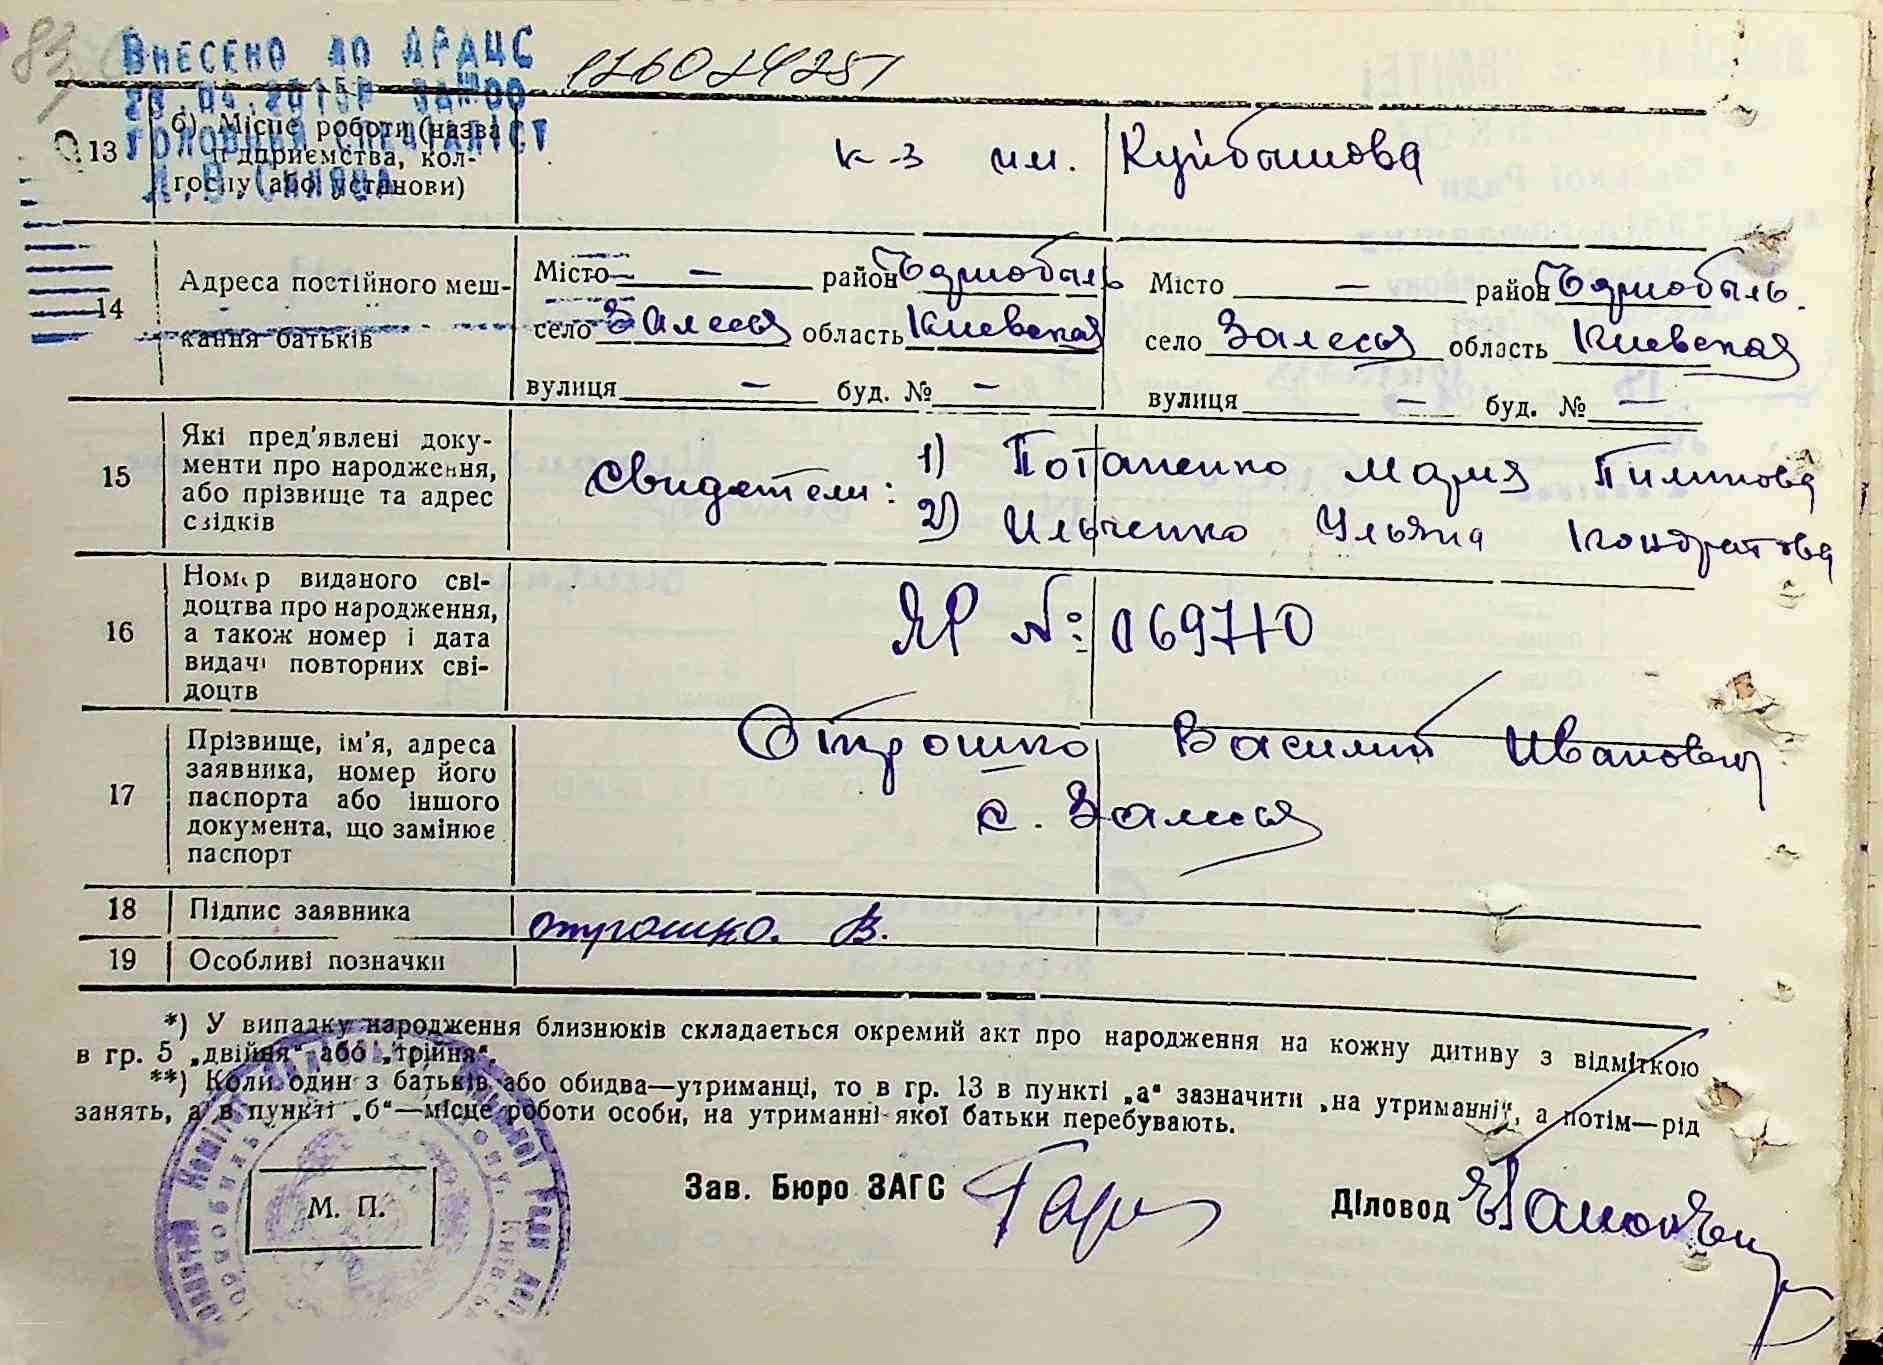 83
Внесено до ДРАЦС
головний спеціаліст
13 б) Місце роботи (назва
підприємства, кол-
госпу (або установи)
к-з им. Куйбышова
14 Адреса постійного меш-
кання батьків
Місто — район Чернобыль
село Залесья область Киевская
вулиця — буд. № —
Місто — район Чернобыль.
село Залесья область Киевская
вулиця — буд. № —
15 Які пред'явлені доку-
менти про народження,
або прізвище та адрес
свідків
Свидетели: 1) Потапенко Мария
2) Ильченко Ульяна Кондратова
16 Номер виданого сві-
доцтва про народження,
а також номер і дата
видачі повторних сві-
доцтв
ЯР №: 069710
17 Прізвище, ім'я, адреса
заявника, номер його
паспорта або іншого
документа, що замінює
паспорт
Отрошко Василий Иванович
с. Залесья
18 Підпис заявника Отрошко. В.
19 Особливі позначки
*) У випадку народження близнюків складається окремий акт про народження на кожну дитину з відміткою
в гр. 5 „двійня“ або „трійня“.
**) Коли один з батьків або обидва—утриманці, то в гр. 13 в пункті „а“ зазначити „на утриманні“, а потім—рід
занять, а в пункті „б“—місце роботи особи, на утриманні якої батьки перебувають.
М. П.
Зав. Бюро ЗАГС
Діловод